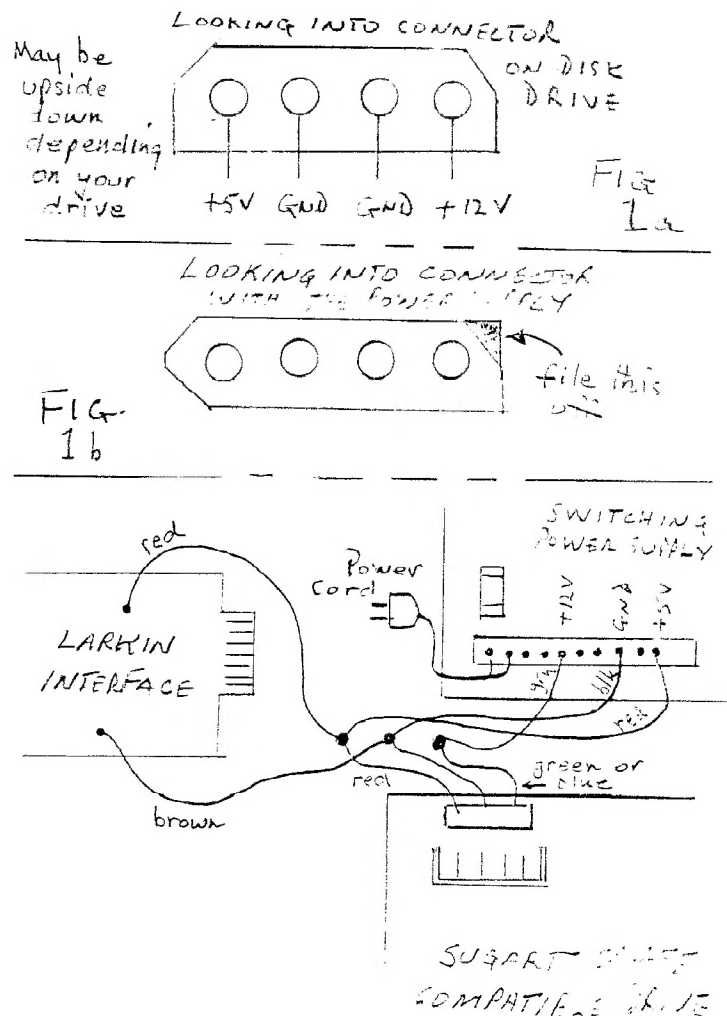 LOOKING INTO CONNECTOR
ON DISK
DRIVE
May be
upside
down
depending
on your
drive
+5V GND GND +12V
FIG
1a
LOOKING INTO CONNECTOR
WITH THE POWER SUPPLY
file this
off
FIG.
1b
SWITCHING
POWER SUPPLY
red
Power
Cord
+12V
GND
+5V
LARKIN
INTERFACE
grn
blk
red
red
green or
blue
brown
SUGART
COMPATIBLE DRIVE